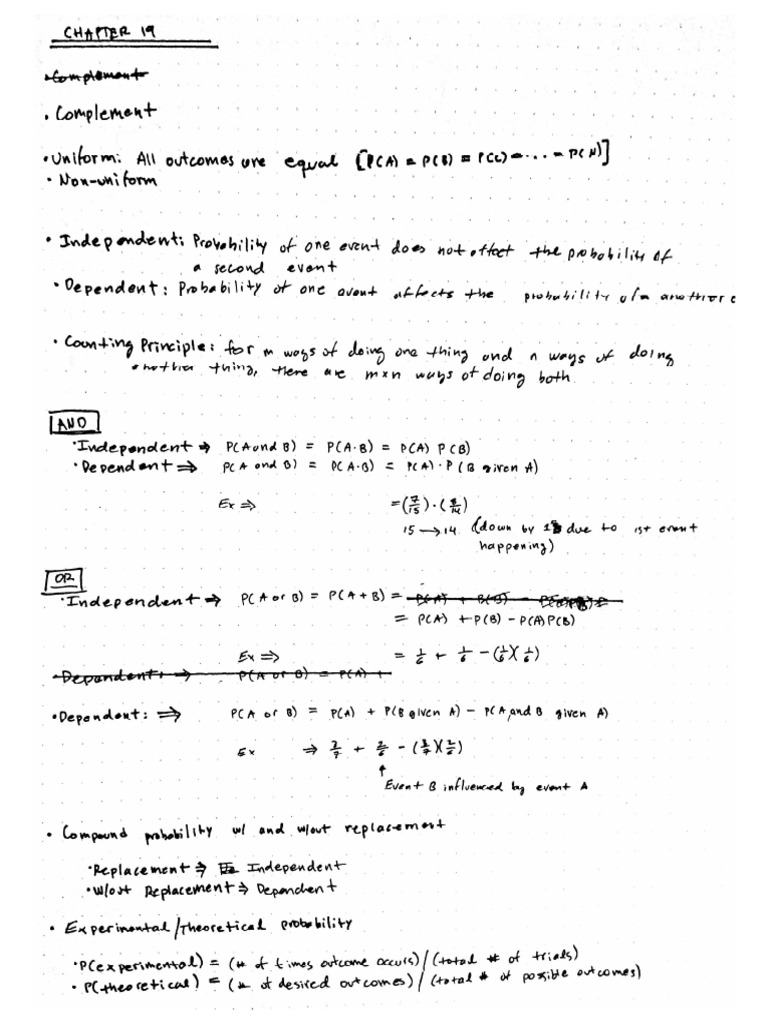 CHAPTER 19
• Complement
• Complement
• Uniform: All outcomes are equal [P(A) = P(B) = P(C) = ... = P(N)]
• Non-uniform
• Independent: Probability of one event does not affect the probability of
a second event
• Dependent: Probability of one event affects the probability of a another e
• Counting Principle: for m ways of doing one thing and n ways of doing
another thing, there are m×n ways of doing both
AND
• Independent ⇒ P(A and B) = P(A·B) = P(A) P(B)
• Dependent ⇒ P(A and B) = P(A·B) = P(A)·P(B given A)
Ex ⇒ = (7/15)·( /14)
15 → 14 (down by 1 due to 1st event
happening)
OR
• Independent ⇒ P(A or B) = P(A+B) = P(A) + P(B) -
= P(A) + P(B) - P(A)P(B)
Ex ⇒ = 1/6 + 1/6 - (1/6)(1/6)
Dependent: ⇒ P(A or B) = P(A) +
• Dependent: ⇒ P(A or B) = P(A) + P(B given A) - P(A and B given A)
Ex ⇒ 3/7 + 2/6 - (3/7)(2/6)
↑
Event B influenced by event A
• Compound probability w/ and w/out replacement
• Replacement ⇒ Independent
• W/out Replacement ⇒ Dependent
• Experimental/Theoretical probability
• P(experimental) = (# of times outcome occurs)/(total # of trials)
• P(theoretical) = (# of desired outcomes)/(total # of possible outcomes)